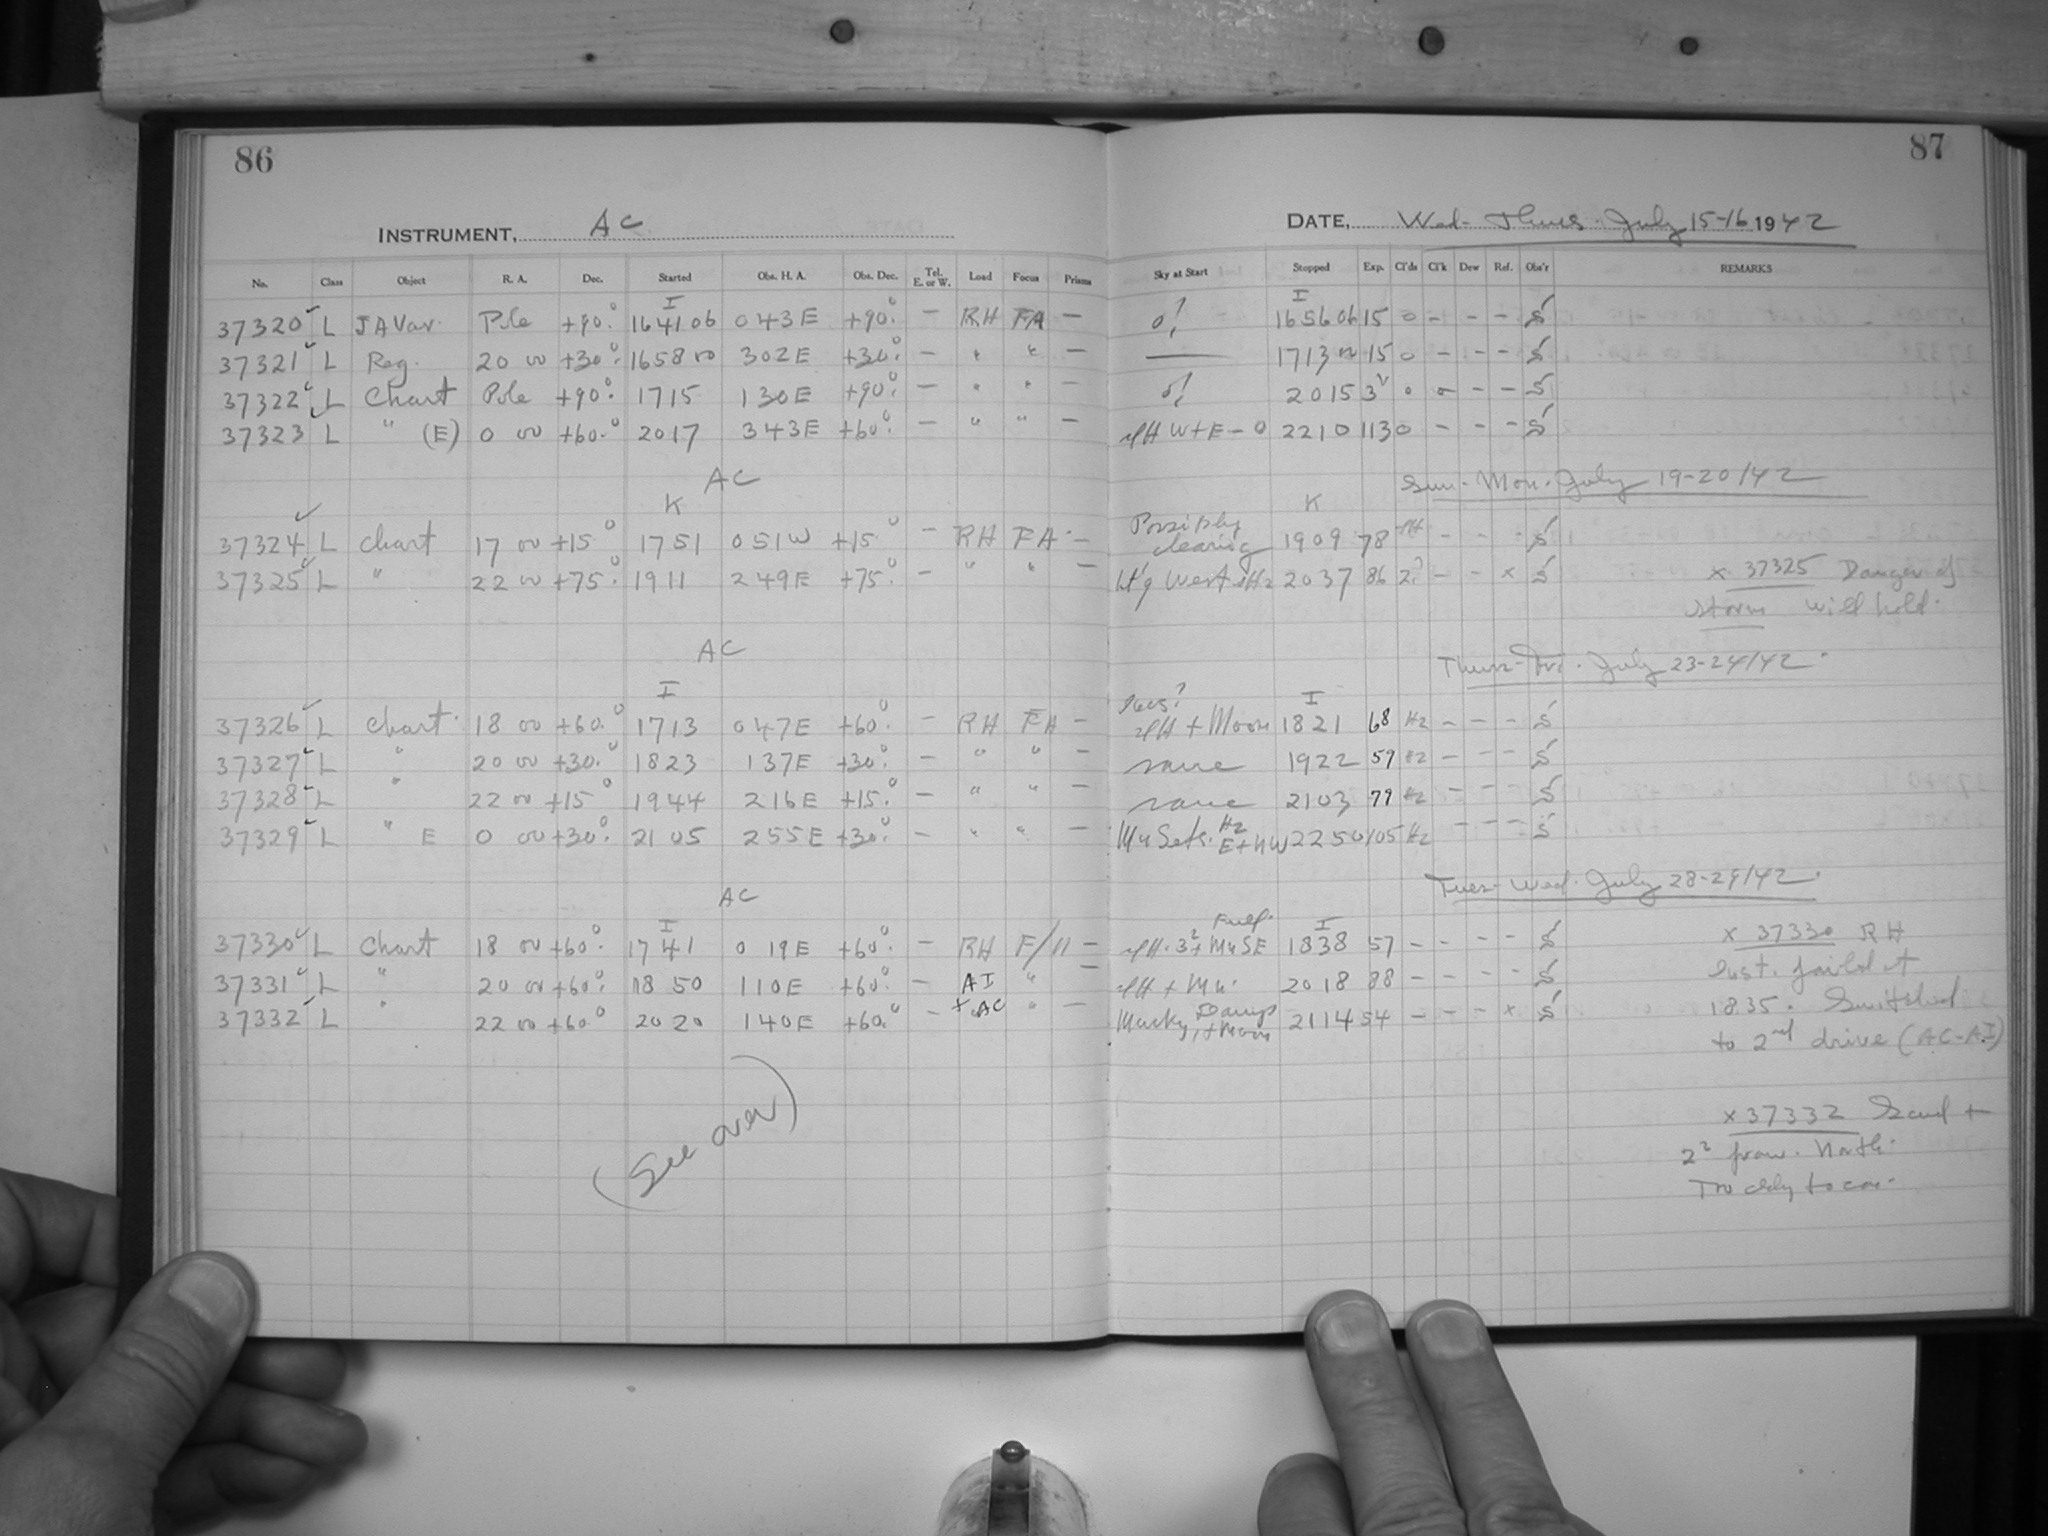 86
87
INSTRUMENT, AC
DATE, Wed- Thurs. July 15-16 1942
No. Class Object R. A. Dec. Started Obs. H. A. Obs. Dec. Tel. E. or W. Load Focus Prisms Sky at Start Stopped Exp. Cl'ds Cl'k Dew Ref. Obs'r REMARKS
I I
37320 L JAVar. Pole +90° 164106 043E +90° - RH FA - 0! 165606 15 0 - - - S
37321 L Reg. 20 00 +30° 165800 302E +30° - " " - — 171300 15 0 - - - S
37322 L Chart Pole +90° 1715 130E +90° - " " - 0! 2015 0 - - - S
37323 L " (E) 0 00 +60° 2017 343E +60° - " " - W+E-0 2210 113 0 - - - S
AC Sun- Mon. July 19-20/42
K K
37324 L Chart 17 00 +15° 1751 051W +15° - RH FA - Possibly clearing 1909 78 - - - S
37325 L " 22 00 +75° 1911 249E +75° - " " - Lt'g West 2037 86 2? - - x S x 37325 Danger of
storm will hold.
AC Thurs-Fri. July 23-24/42
I I
37326 L Chart 18 00 +60° 1713 047E +60° - RH FA - + Moon 1821 68 Hz - - - S
37327 L " 20 00 +30° 1823 137E +30° - " " - same 1922 59 Hz - - - S
37328 L " 22 00 +15° 1944 216E +15° - " " - same 2103 79 Hz - - - S
37329 L " E 0 00 +30° 2105 255E +30° - " " - Mn Sets. Hz E+NW 2250 105 Hz - - - S
AC Tues- Wed. July 28-29/42
I I
37330 L Chart 18 00 +60° 1741 019E +60° - RH F/11 - + Mn SE 1838 57 - - - - S x 37330 RH
37331 L " 20 00 +60° 1850 110E +60° - AI " - + Mn. 2018 88 - - - - S Inst. failed at
37332 L " 22 00 +60° 2020 140E +60° - + AC " - Murky, Damp, + Moon 2114 54 - - - x S 18.35. Switched
to 2nd drive (AC-AI)
(See over)
x 37332 +
2² from North.